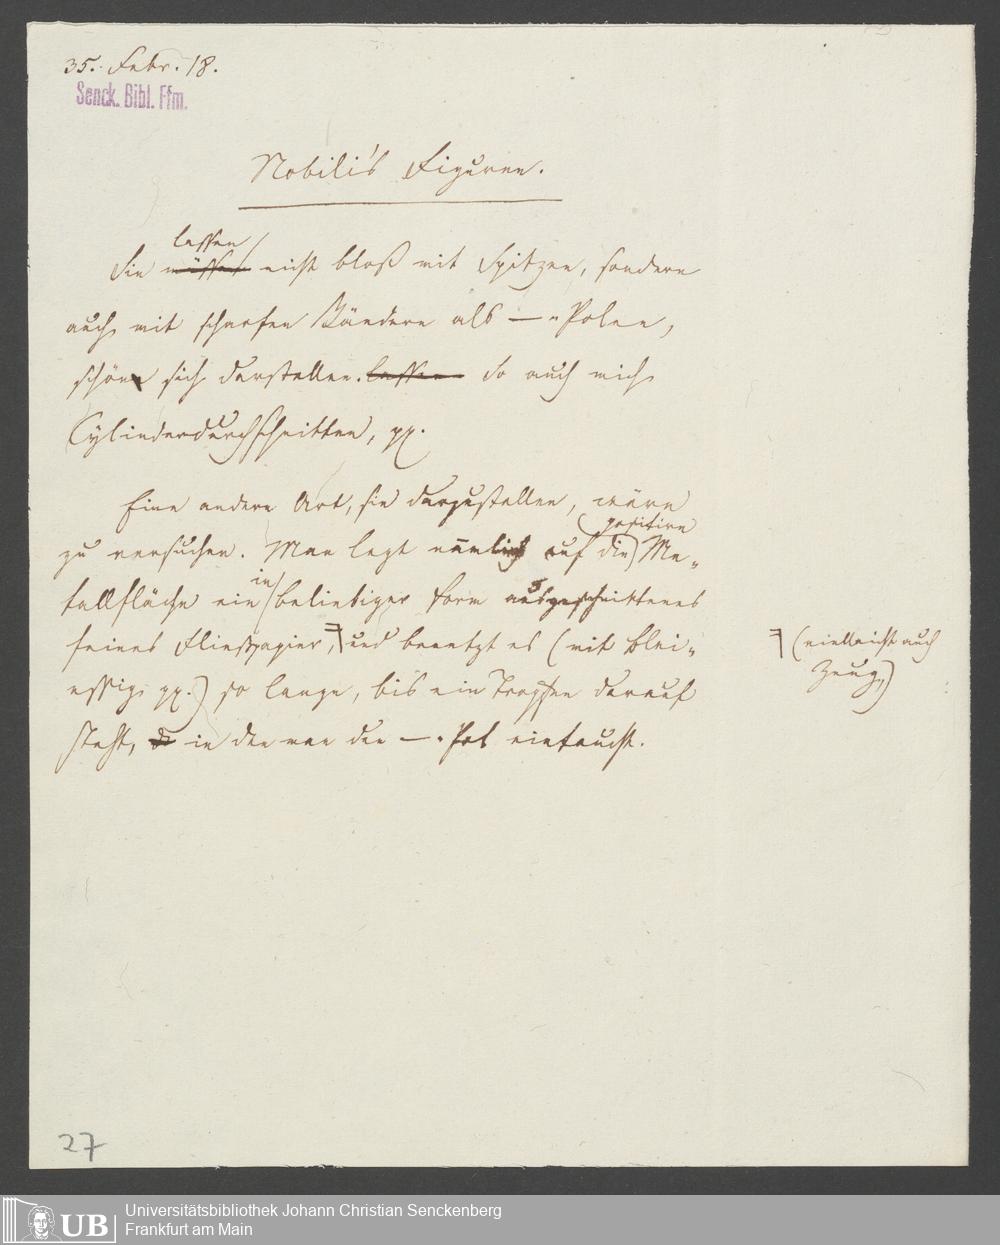 35. Febr. 18.
Senck. Bibl. Ffm.
Nobili's Figuren.
lassen
Sie müssen nicht bloß mit Spitzen, sondern
auch mit scharfen Rändern als —Polen,
schön sich darstellen. lassen So auch mich
Cylinderdurchschnitten, pp.
Eine andere Art, sie darzustellen, wäre
positive
zu versuchen. Man legt nemlich auf die Me-
in
tallfläche ein beliebiger Form ausgeschnittenes
feines Fließpapier, und benetzt es (mit Blei-
(vielleicht auch
Zeug,)
essig pp.) so lange, bis ein Tropfen darauf
steht, in den man den —Pol eintaucht.
27
UB
Universitätsbibliothek Johann Christian Senckenberg
Frankfurt am Main